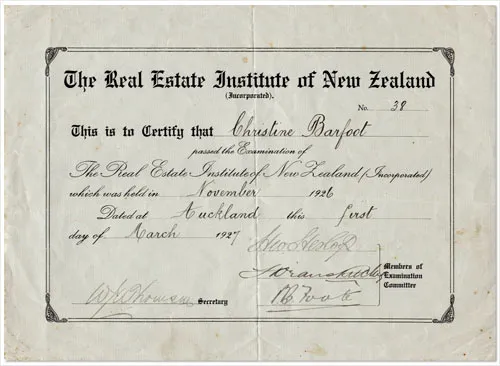 The Real Estate Institute of New Zealand
(Incorporated).
No. 38
This is to Certify that Christine Barfoot
passed the Examination of
The Real Estate Institute of New Zealand (Incorporated)
which was held in November 1926
Dated at Auckland this first
day of March 1927
Members of
Examination
Committee
Secretary